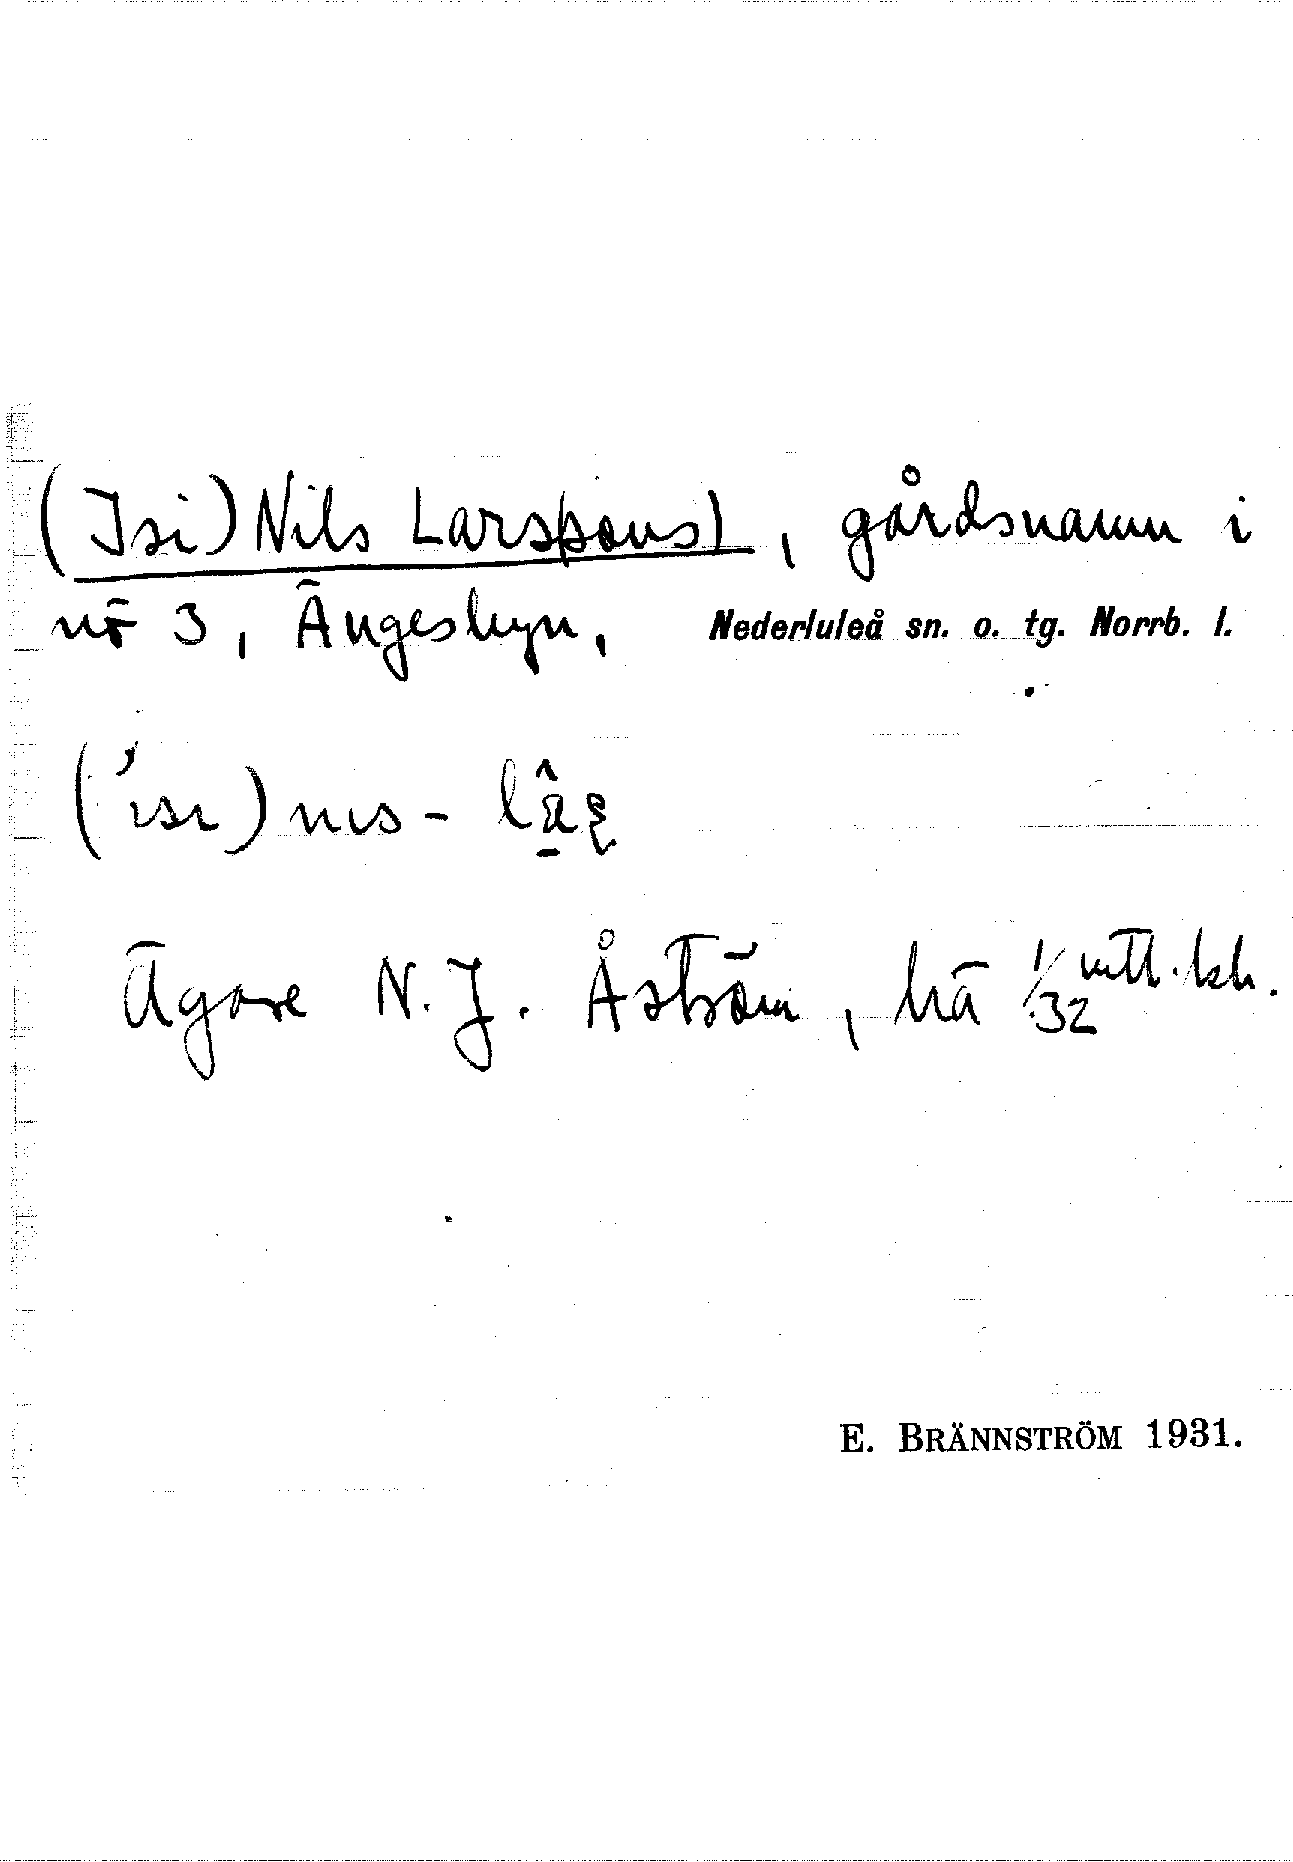 (Isi) Nils Lars(sons), gårdsnamn i
nr 3, Ängesbyn, Nederluleå sn. o. tg. Norrb. l.
(ɪsɪ) nɪs-
Ägare N. J. Åström, hä 1/32 mtl.
E. BRÄNNSTRÖM 1931.